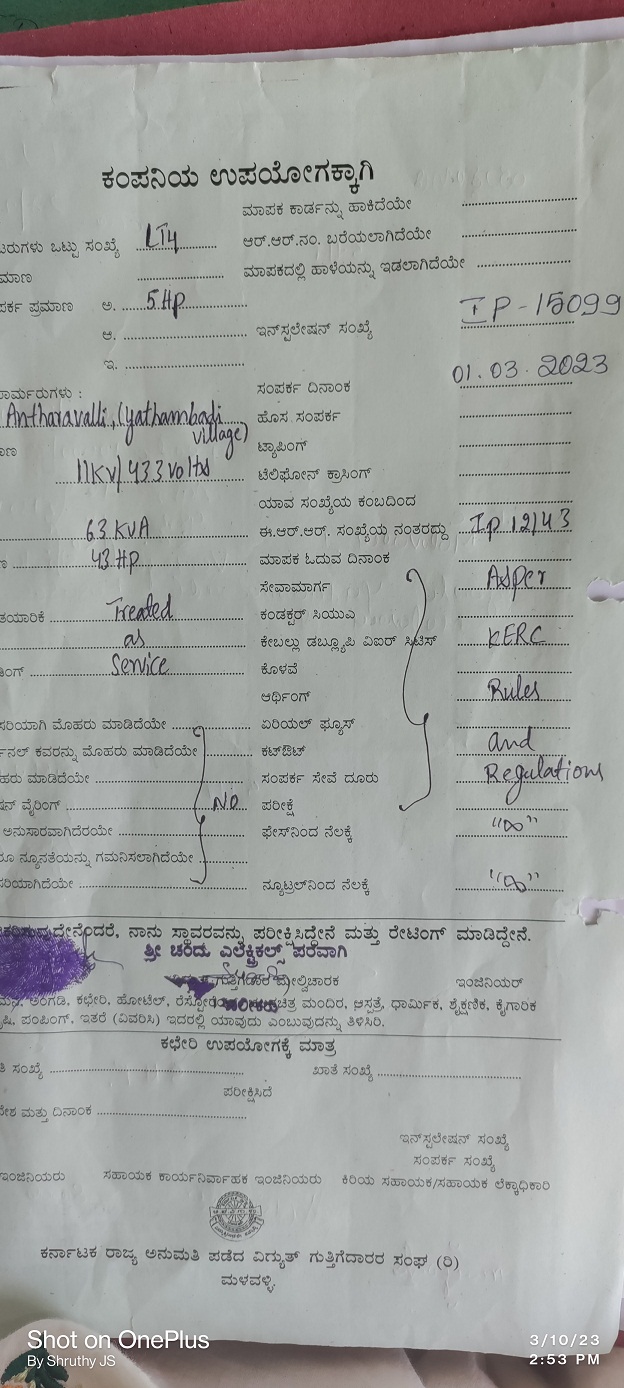 ಕಂಪನಿಯ ಉಪಯೋಗಕ್ಕಾಗಿ
ಮಾಪಕ ಕಾರ್ಡನ್ನು ಹಾಕಿದೆಯೇ
ಒಟ್ಟು ಸಂಖ್ಯೆ LT4 ಆರ್.ಆರ್.ನಂ. ಬರೆಯಲಾಗಿದೆಯೇ
ಮಾಪಕದಲ್ಲಿ ಹಾಳೆಯನ್ನು ಇಡಲಾಗಿದೆಯೇ
ಪ್ರಮಾಣ ಅ. 5 Hp
ಆ. ಇನ್‌ಸ್ಪಲೇಷನ್ ಸಂಖ್ಯೆ IP-15099
ಇ.
ಸಂಪರ್ಕ ದಿನಾಂಕ 01.03.2023
Antharavalli, (yathambadi village) ಹೊಸ ಸಂಪರ್ಕ
ಟ್ಯಾಪಿಂಗ್
11Kv/433 Volts ಟೆಲಿಫೋನ್ ಕ್ರಾಸಿಂಗ್
ಯಾವ ಸಂಖ್ಯೆಯ ಕಂಬದಿಂದ
63 KVA ಈ.ಆರ್.ಆರ್. ಸಂಖ್ಯೆಯ ನಂತರದ್ದು Ip 12143
43 Hp ಮಾಪಕ ಓದುವ ದಿನಾಂಕ
ಸೇವಾಮಾರ್ಗ Asper
Treated ಕಂಡಕ್ಟರ್ ಸಿಯುಎ
as ಕೇಬಲ್ಲು ಡಬ್ಲ್ಯೂಪಿ ವಿಐರ್ KERC
Service ಕೊಳವೆ
ಆರ್ಥಿಂಗ್ Rules
ಮೊಹರು ಮಾಡಿದೆಯೇ ಏರಿಯಲ್ ಫ್ಯೂಸ್
ಕವರನ್ನು ಮೊಹರು ಮಾಡಿದೆಯೇ ಕಟ್‌ಔಟ್ and
ಮಾಡಿದೆಯೇ ಸಂಪರ್ಕ ಸೇವೆ ದೂರು Regulations
ವೈರಿಂಗ್ NO ಪರೀಕ್ಷೆ
ಅನುಸಾರವಾಗಿದೆರಯೇ ಫೇಸ್‌ನಿಂದ ನೆಲಕ್ಕೆ "∞"
ನ್ಯೂನತೆಯನ್ನು ಗಮನಿಸಲಾಗಿದೆಯೇ
ನ್ಯೂಟ್ರಲ್‌ನಿಂದ ನೆಲಕ್ಕೆ "∞"
ನಾನು ಸ್ಥಾವರವನ್ನು ಪರೀಕ್ಷಿಸಿದ್ದೇನೆ ಮತ್ತು ರೇಟಿಂಗ್ ಮಾಡಿದ್ದೇನೆ.
ಶ್ರೀ ಚಂದು ಎಲೆಕ್ಟ್ರಿಕಲ್ಸ್ ಪರವಾಗಿ
ಮೇಲ್ವಿಚಾರಕ ಇಂಜಿನಿಯರ್
ಮಾಲೀಕರು
ಅಂಗಡಿ, ಕಛೇರಿ, ಹೋಟೆಲ್, ಮಂದಿರ, ಆಸ್ಪತ್ರೆ, ಧಾರ್ಮಿಕ, ಶೈಕ್ಷಣಿಕ, ಕೈಗಾರಿಕ
ಪಂಪಿಂಗ್, ಇತರೆ (ವಿವರಿಸಿ) ಇದರಲ್ಲಿ ಯಾವುದು ಎಂಬುವುದನ್ನು ತಿಳಿಸಿರಿ.
ಕಛೇರಿ ಉಪಯೋಗಕ್ಕೆ ಮಾತ್ರ
ಸಂಖ್ಯೆ ಖಾತೆ ಸಂಖ್ಯೆ
ಪರೀಕ್ಷಿಸಿದೆ
ಮತ್ತು ದಿನಾಂಕ
ಇನ್‌ಸ್ಪಲೇಷನ್ ಸಂಖ್ಯೆ
ಸಂಪರ್ಕ ಸಂಖ್ಯೆ
ಇಂಜಿನಿಯರು ಸಹಾಯಕ ಕಾರ್ಯನಿರ್ವಾಹಕ ಇಂಜಿನಿಯರು ಕಿರಿಯ ಸಹಾಯಕ/ಸಹಾಯಕ ಲೆಕ್ಕಾಧಿಕಾರಿ
ಕರ್ನಾಟಕ ರಾಜ್ಯ ಅನುಮತಿ ಪಡೆದ ವಿದ್ಯುತ್ ಗುತ್ತಿಗೆದಾರರ ಸಂಘ (ರಿ)
ಮಳವಳ್ಳಿ
Shot on OnePlus
By Shruthy JS
3/10/23
2:53 PM